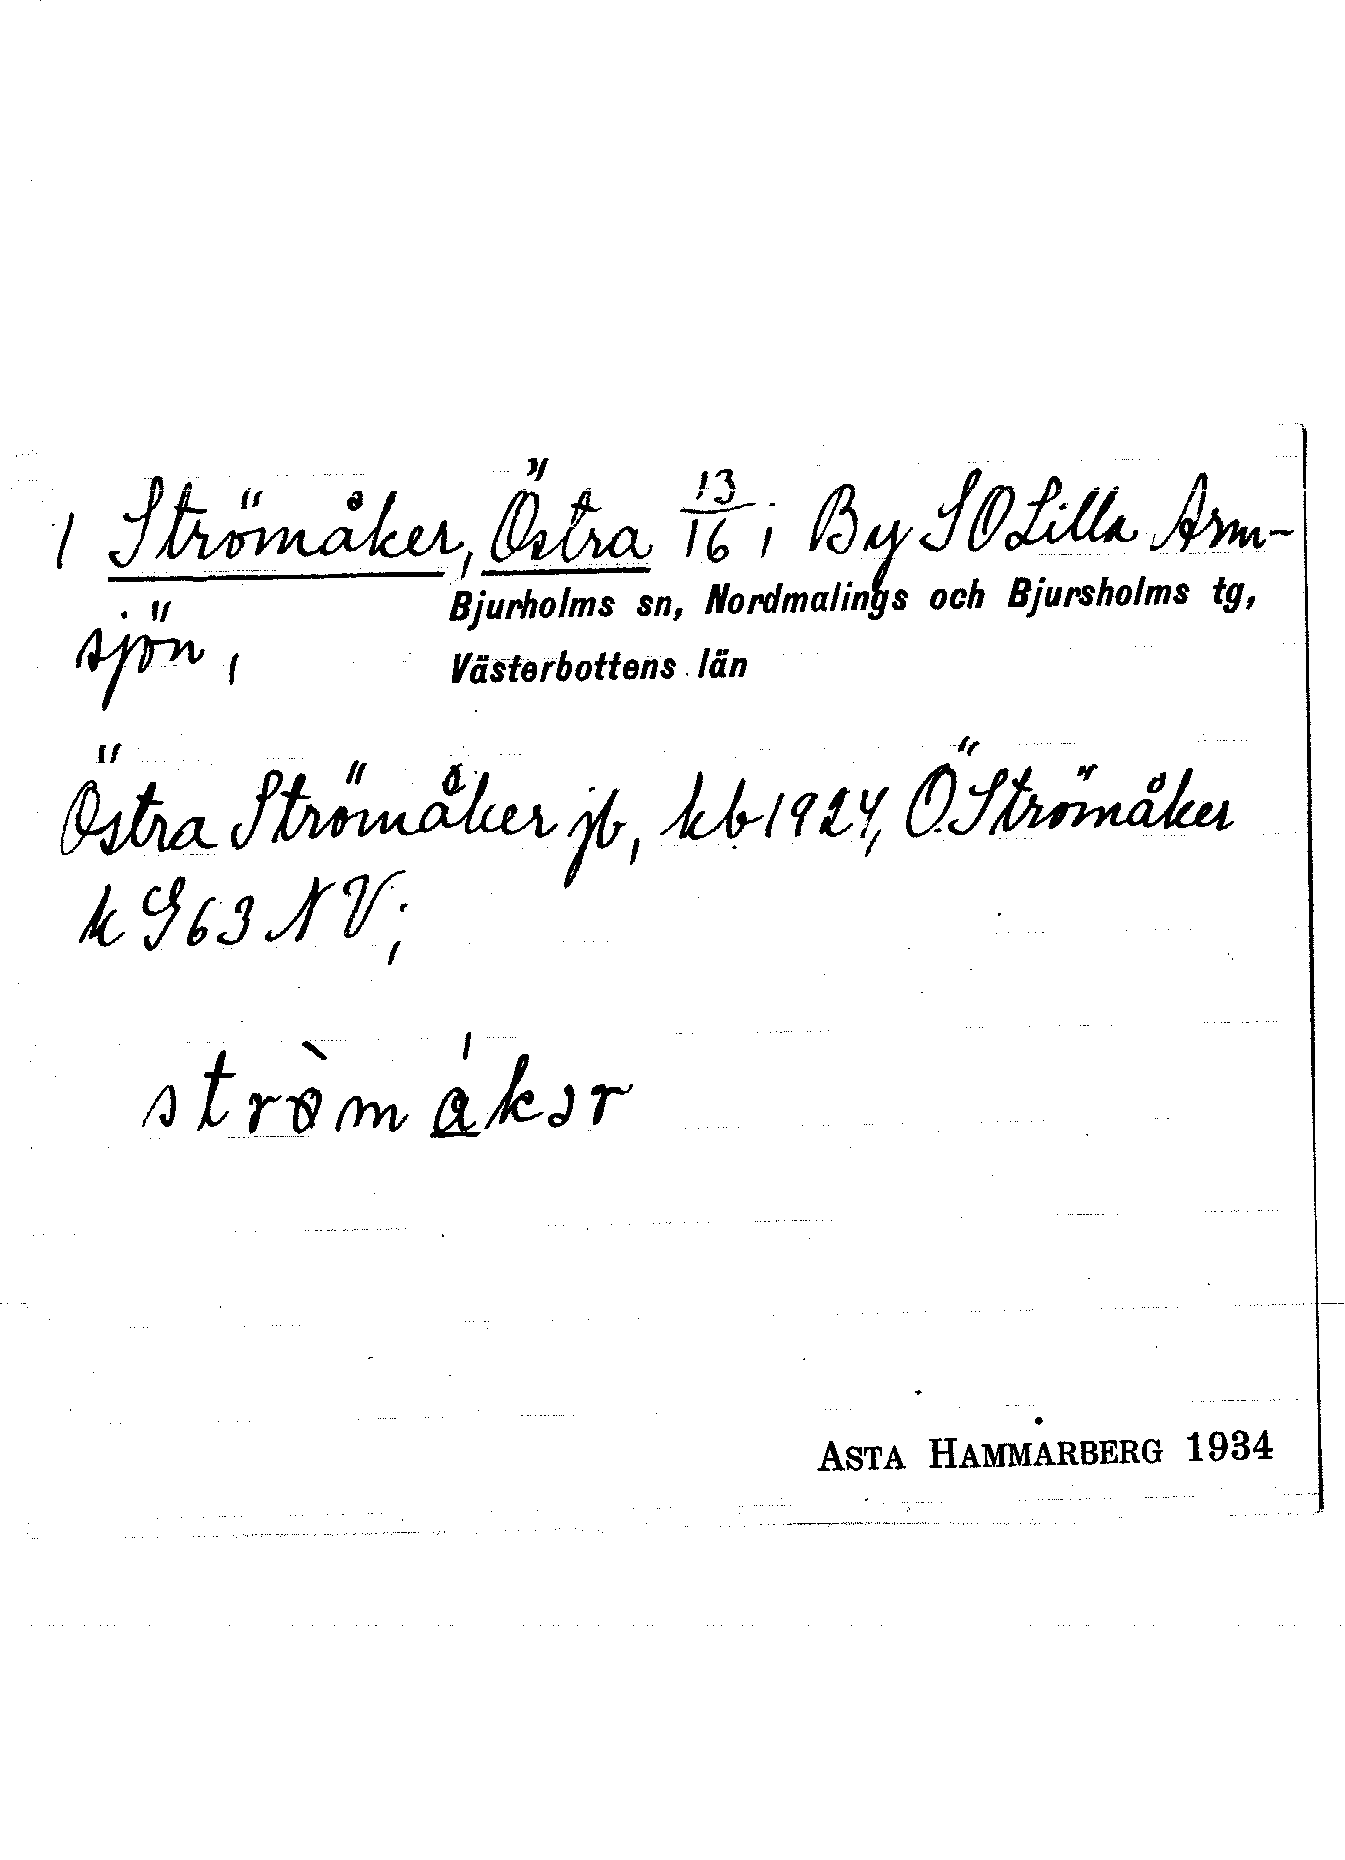 1 Strömåker, Östra 13/16; By SO Lilla Arm-
sjön, Bjurholms sn, Nordmalings och Bjursholms tg,
Västerbottens län
Östra Strömåker jb, kb 1924, Ö. Strömåker
k G63 NV;
strömåkər
ASTA HAMMARBERG 1934